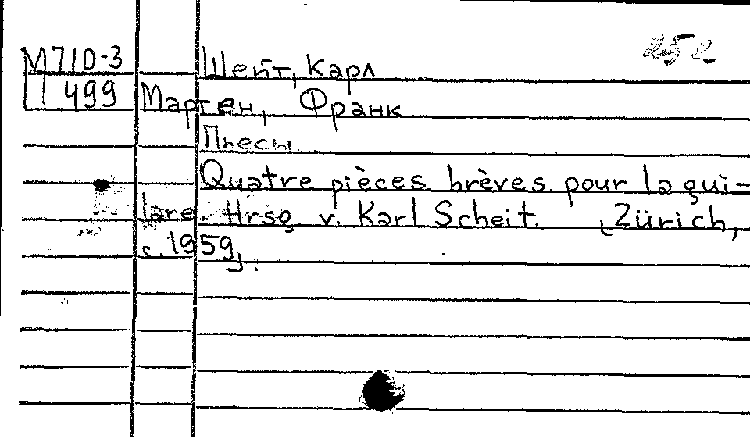 252
М71D-3 Шейт, Карл
Ц 499 Мартен, Франк
Пьесы
Quatre pièces brèves pour la gui-
tare. Hrsg v. Karl Scheit. [Zürich,
c.1959].